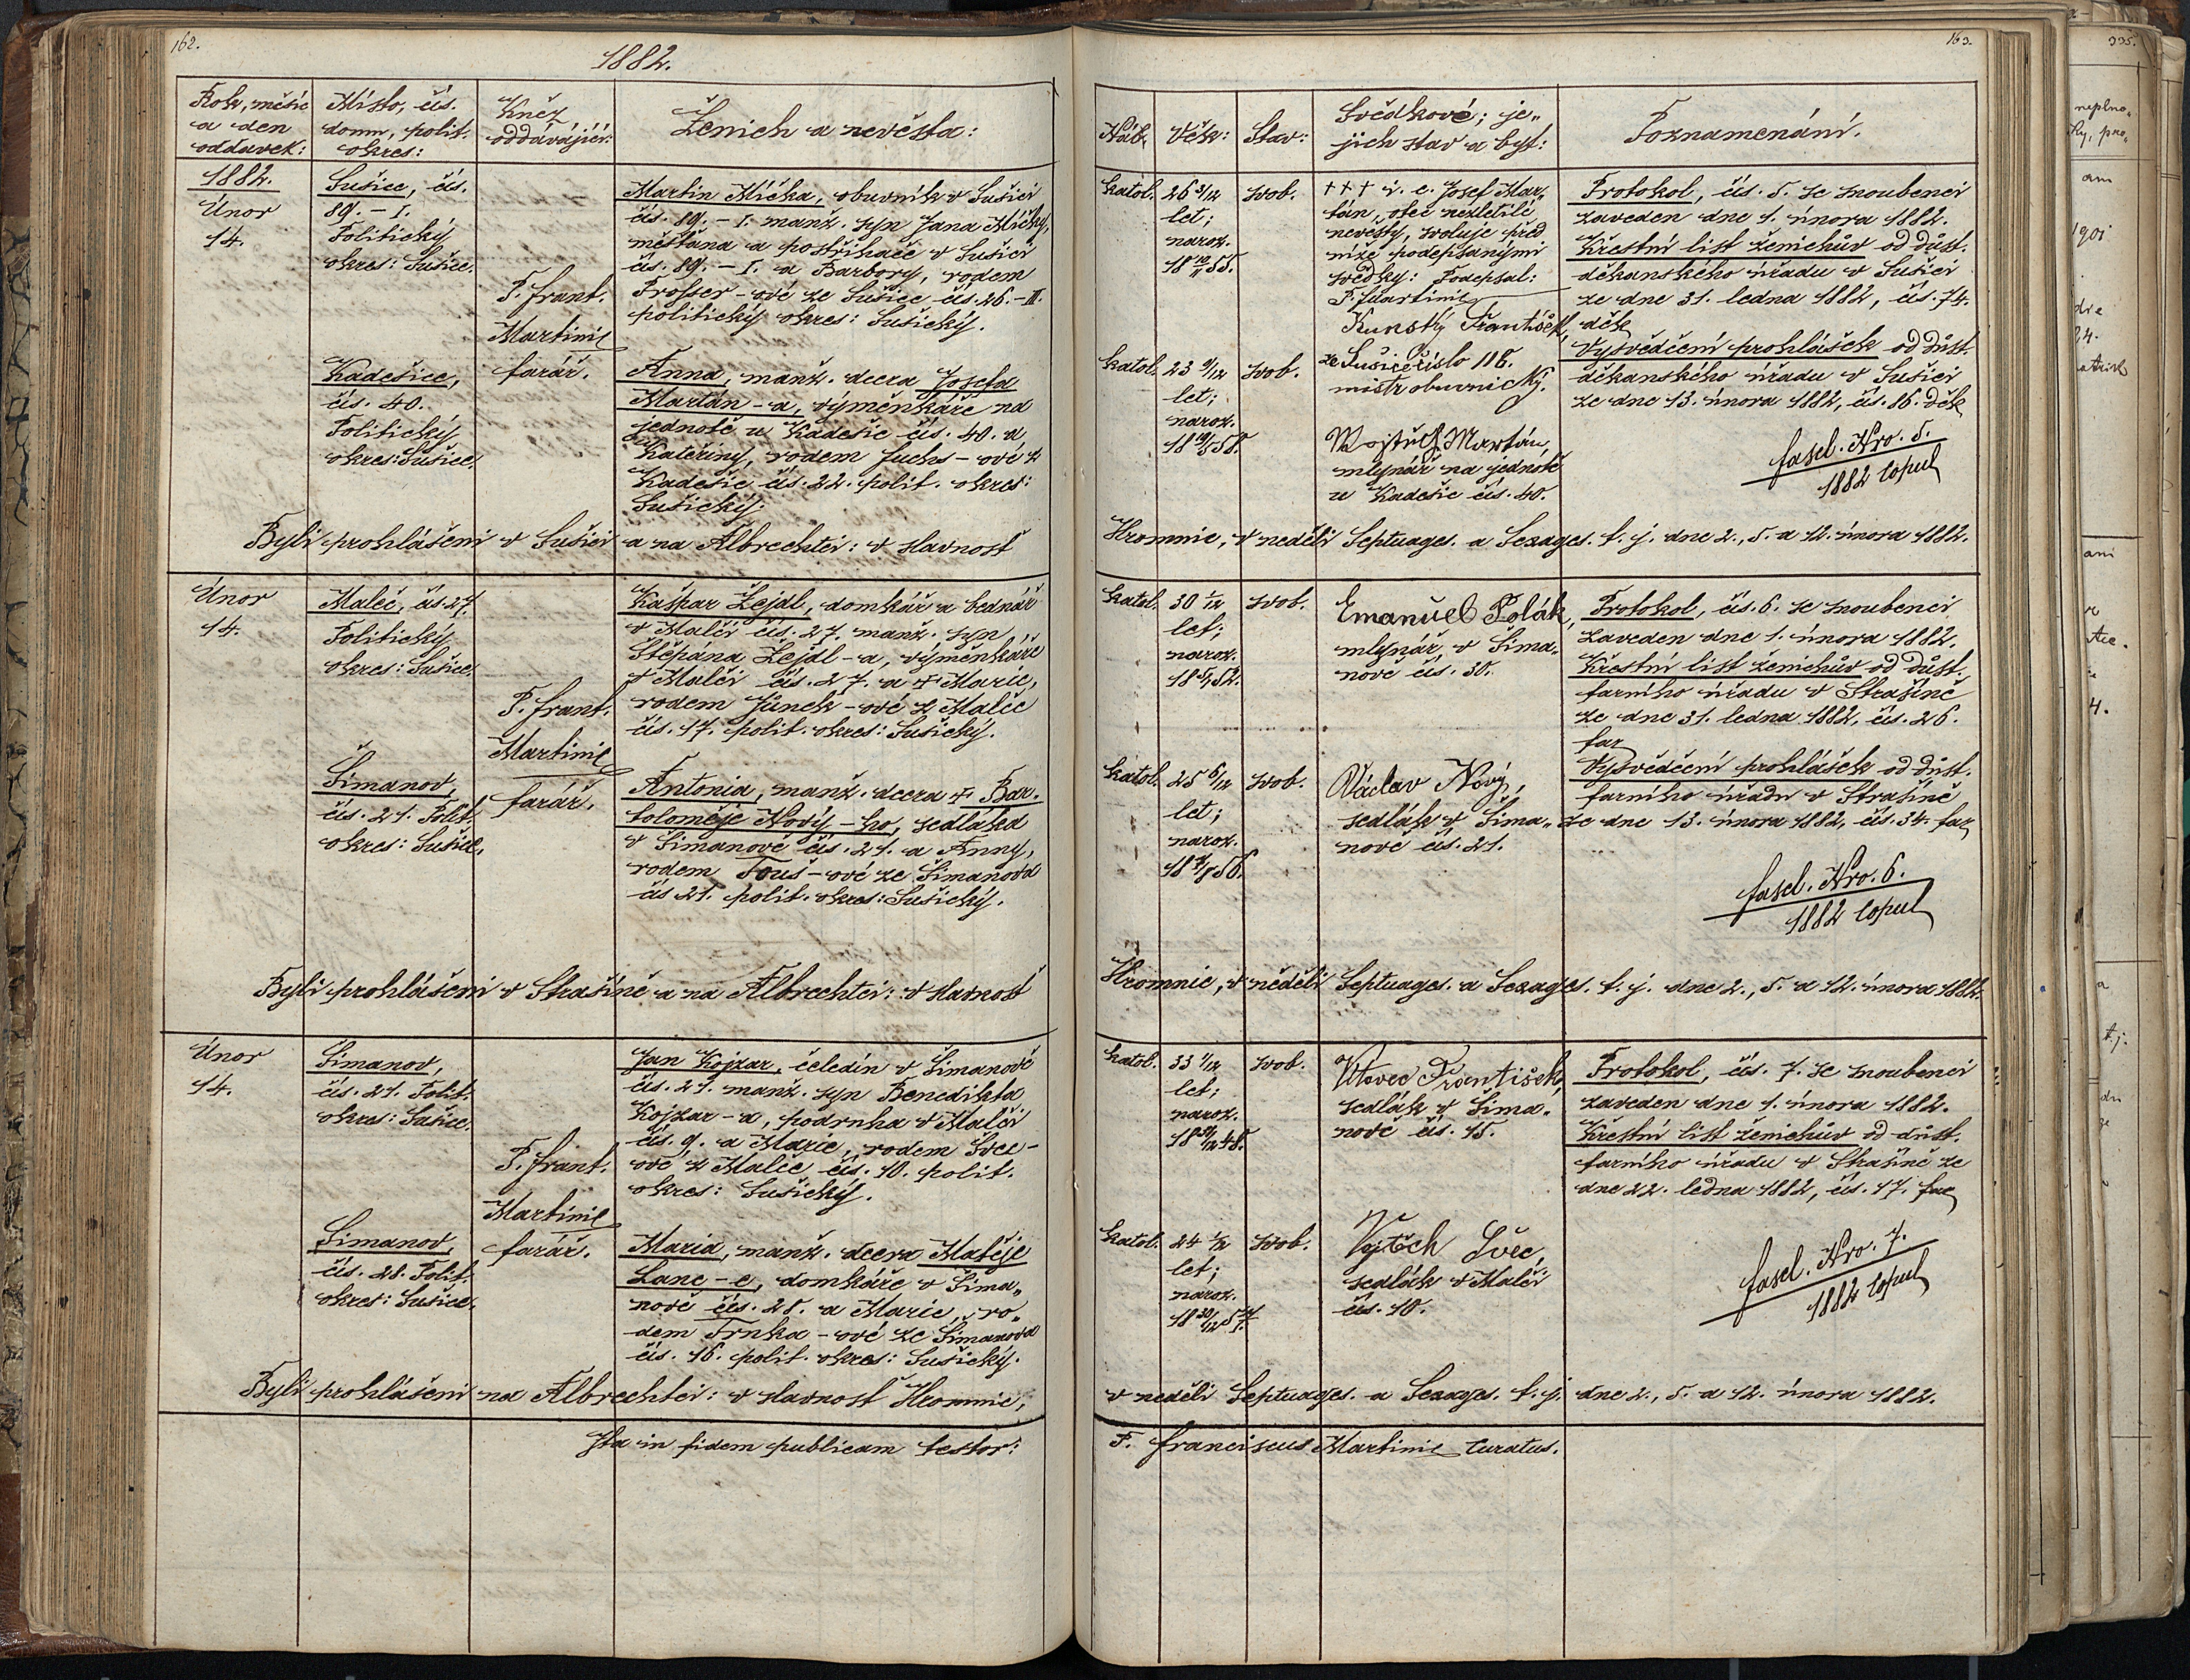 162.
1882.
Rok, měsíc
a den
oddavek:
Místo, čís.
domu, polit.
okres:
Kněz
oddávající:
Ženich a nevěsta:
1882.
Únor
14.
Sušice, čís.
89. – I.
Politický
okres: Sušice.
P. Frant.
Martinic
farář.
Martin Mička, obuvník v Sušici
čís. 89. – I. manž. syn Jana Mičky,
měšťana a postřihače v Sušici
čís. 89. – I. a Barbory, rodem
Prosser – ové ze Sušice čís. 26. – II.
politický okres: Sušický.
Kadešice,
čís. 40.
Politický
okres: Sušice.
Anna, manž. dcera Josefa
Martán – a, výměnkáře na
jednotě u Kadešic čís. 40. a
Kateřiny, rodem Fuchs – ové z
Kadešic čís. 22. polit. okres:
Sušický.
Byli prohlášeni v Sušici a na Albrechtci: v slavnost
Únor
14.
Maleč, čís. 27.
Politický
okres: Sušice.
P. Frant.
Martinic
farář.
Kašpar Žejdl, domkář a bednář
v Malči čís. 27. manž. syn
Štěpána Žejdl – a, výměnkáře
v Malči čís. 27. a + Marie,
rodem Jůnek – ové z Malče
čís. 17. polit. okres: Sušický.
Šimanov,
čís. 21. Polit.
okres: Sušice.
Antonia, manž. dcera + Bar-
toloměje Nový – ho, sedláka
v Šimanově čís. 21. a Anny,
rodem Touš – ové ze Šimanova
čís 21. polit. okres: Sušický.
Byli prohlášeni v Strašíně a na Albrechtci: v slavnost
Únor
14.
Šimanov,
čís. 21. Polit.
okres: Sušice.
P. Frant.
Martinic
farář.
Jan Kojzar, čeledín v Šimanově
čís. 21. manž. syn Benedikta
Kojzar – a, podruha v Malči
čís. 9. a Marie, rodem Švec –
ové z Malče čís. 10. polit.
okres: Sušický.
Šimanov,
čís. 28. Polit.
okres: Sušice.
Maria, manž. dcera Matěje
Lanc – e, domkáře v Šima„
nově čís. 28. a Marie, ro„
dem Trnka – ové ze Šimanova
čís. 16. polit. okres: Sušický.
Byli prohlášeni na Albrechtci: v slavnost Hromnic,
Ita in fidem publicam testor:
163.
Náb.
Věk:
Stav:
Svědkové; je„
jich stav a byt:
Poznamenání.
katol.
26 3/12
let;
naroz.
18 10/11 55.
svob.
+++ i. e. Josef Mar„
tán, otec nezletilé
nevěsty, svoluje před
níže podepsanými
svědky: Podepsal:
P. Martinic
Kunský František,
ze Sušice číslo 118.
mistr obuvnický.
Protokol, čís. 5. se snoubenci
zaveden dne 1. února 1882.
Křestní list ženichův od důst.
děkanského úřadu v Sušici
ze dne 31. ledna 1882, čís. 74.
děk
Vysvědčení prohlášek od důst.
děkanského úřadu v Sušici
ze dne 13. února 1882, čís. 86. děk
katol.
let;
naroz.
svob.
Martán,
mlynář na jednotě
u Kadešic čís. 40.
fasc. Nro. 5.
1882 Copul
Hromnic, v neděli Septuages. a Sexages. t. j. dne 2., 5. a 12. února 1882.
katol.
30 1/12
let;
naroz.
svob.
Emanuel Polák,
mlynář, v Šima„
nově čís. 30.
Protokol, čís. 6. se snoubenci
zaveden dne 1. února 1882.
Křestní list ženichův od důst.
farního úřadu v Strašíně
ze dne 31. ledna 1882, čís. 26.
far
Vysvědčení prohlášek od důst.
farního úřadu v Strašíně
ze dne 13. února 1882, čís. 34. far
katol.
25 6/12
let;
naroz.
svob.
Václav Nový,
sedlák v Šima„
nově čís. 21.
fasc. Nro. 6.
1882 Copul
Hromnic, v neděli Septuages. a Sexages. t. j. dne 2., 5. a 12. února 1882.
katol.
33 1/12
let;
naroz.
svob.
František,
sedlák v Šima„
nově čís. 15.
Protokol, čís. 7. se snoubenci
zaveden dne 1. února 1882.
Křestní list ženichův od důst.
farního úřadu v Strašíně ze
dne 22. ledna 1882, čís. 17. far
katol.
let;
naroz.
svob.
Vojtěch Švec,
sedlák v Malči
čís. 10.
fasc. Nro. 7.
1882 Copul
v neděli Septuages. a Sexages. t. j. dne 2., 5. a 12. února 1882.
P. Franciscus Martinic Curatus.
335.